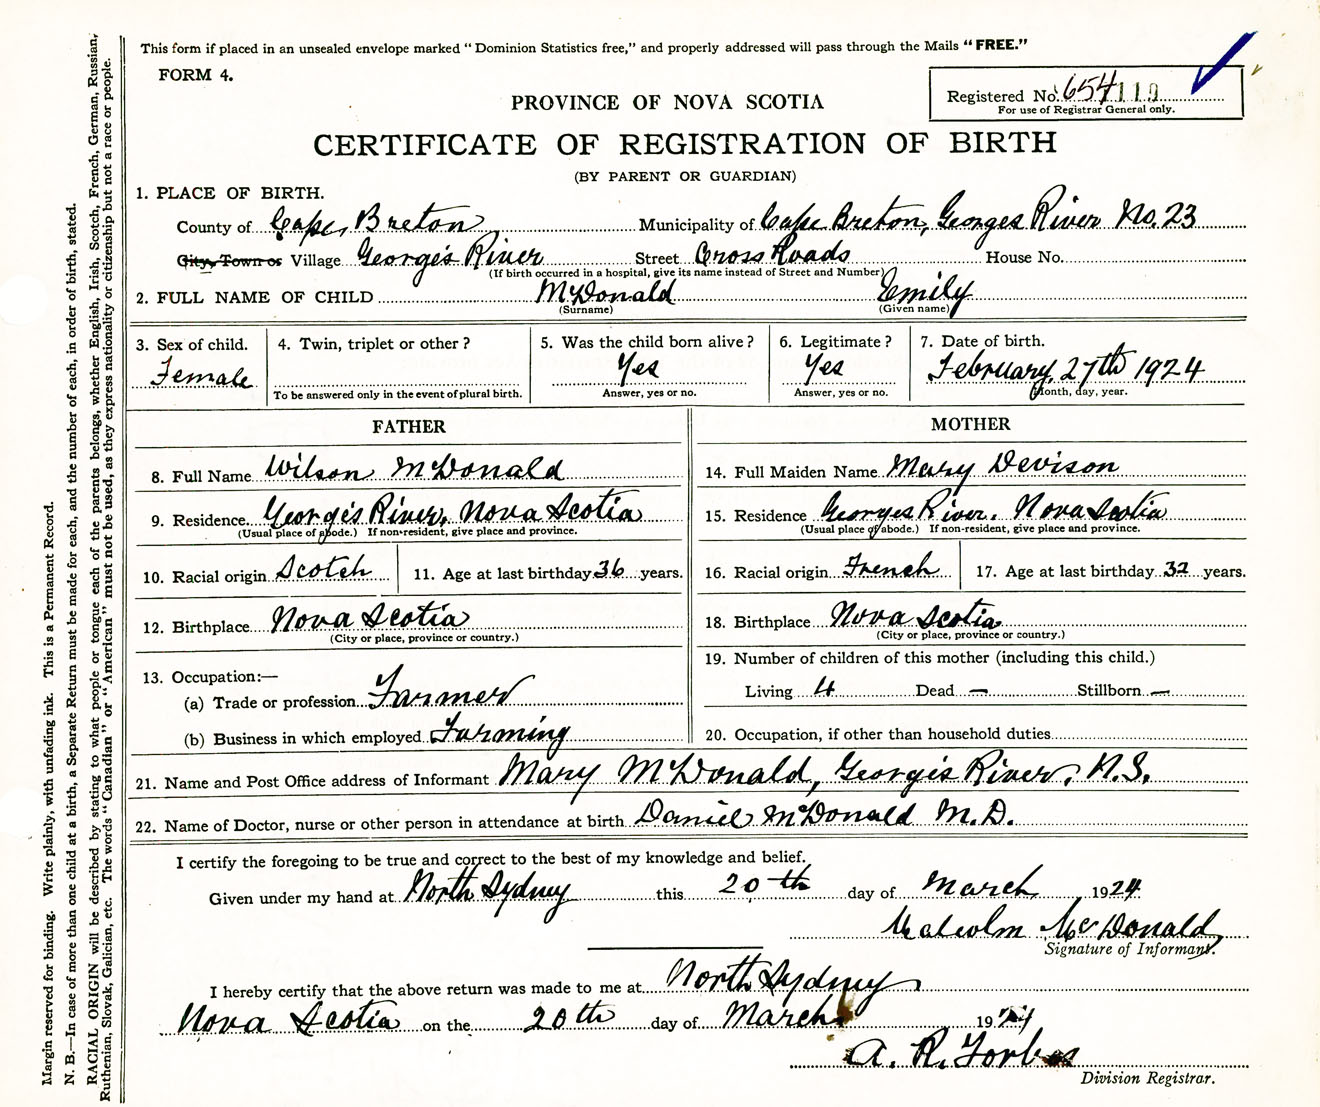 This form if placed in an unsealed envelope marked “Dominion Statistics free,” and properly addressed will pass through the Mails “FREE.”
FORM 4.
Registered No. 654119
For use of Registrar General only.
PROVINCE OF NOVA SCOTIA
CERTIFICATE OF REGISTRATION OF BIRTH
(BY PARENT OR GUARDIAN)
1. PLACE OF BIRTH.
County of Cape Breton Municipality of Cape Breton, Georges River No. 23
City, Town or Village George's River Street Cross Roads House No.
(If birth occurred in a hospital, give its name instead of Street and Number)
2. FULL NAME OF CHILD McDonald Emily
(Surname) (Given name)
3. Sex of child. 4. Twin, triplet or other? 5. Was the child born alive? 6. Legitimate? 7. Date of birth.
Female Yes Yes February, 27th 1924
To be answered only in the event of plural birth. Answer, yes or no. Answer, yes or no. Month, day, year.
FATHER MOTHER
8. Full Name Wilson McDonald 14. Full Maiden Name Mary Devison
9. Residence George's River, Nova Scotia 15. Residence Georges River, Nova Scotia
(Usual place of abode.) If non-resident, give place and province. (Usual place of abode.) If non-resident, give place and province.
10. Racial origin Scotch 11. Age at last birthday 36 years. 16. Racial origin French 17. Age at last birthday 32 years.
12. Birthplace Nova Scotia 18. Birthplace Nova Scotia
(City or place, province or country.) (City or place, province or country.)
13. Occupation:— 19. Number of children of this mother (including this child.)
(a) Trade or profession Farmer Living 4 Dead — Stillborn —
(b) Business in which employed Farming 20. Occupation, if other than household duties
21. Name and Post Office address of Informant Mary McDonald, George's River, N.S.
22. Name of Doctor, nurse or other person in attendance at birth Daniel McDonald M.D.
I certify the foregoing to be true and correct to the best of my knowledge and belief.
Given under my hand at North Sydney this 20th day of March 1924
Malcolm McDonald
Signature of Informant.
I hereby certify that the above return was made to me at North Sydney
Nova Scotia on the 20th day of March 1924
A. R. Forbes
Division Registrar.
Margin reserved for binding. Write plainly, with unfading ink. This is a Permanent Record.
N. B.—In case of more than one child at a birth, a Separate Return must be made for each, and the number of each, in order of birth, stated.
RACIAL ORIGIN will be described by stating to what people or tongue each of the parents belongs, whether English, Irish, Scotch, French, German, Russian,
Ruthenian, Slovak, Galician, etc. The words “Canadian” or “American” must not be used, as they express nationality or citizenship but not a race or people.